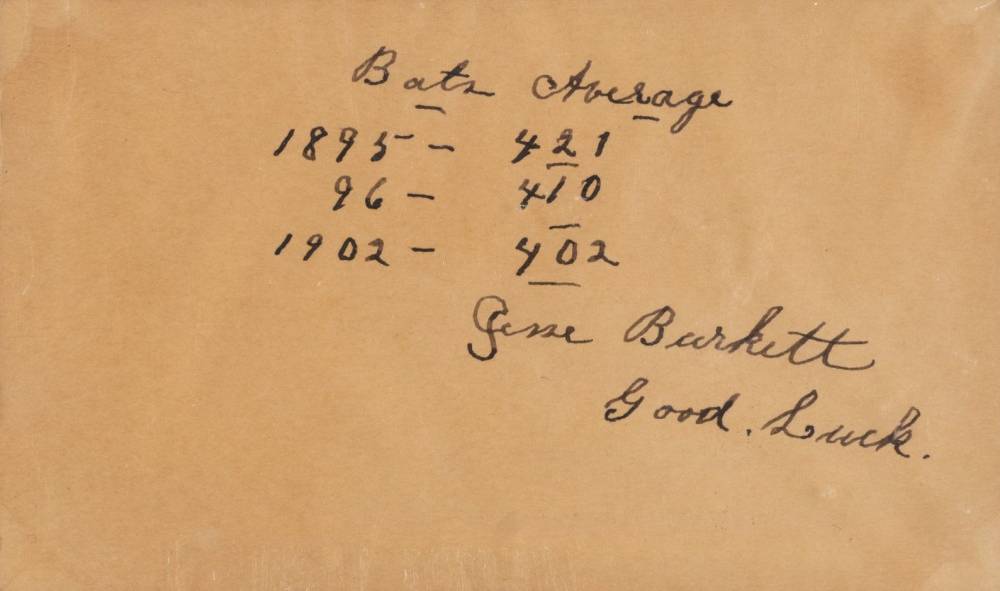 Bats Average
1895 - 421
96 - 410
1902 - 402
Jesse Burkett
Good. Luck.